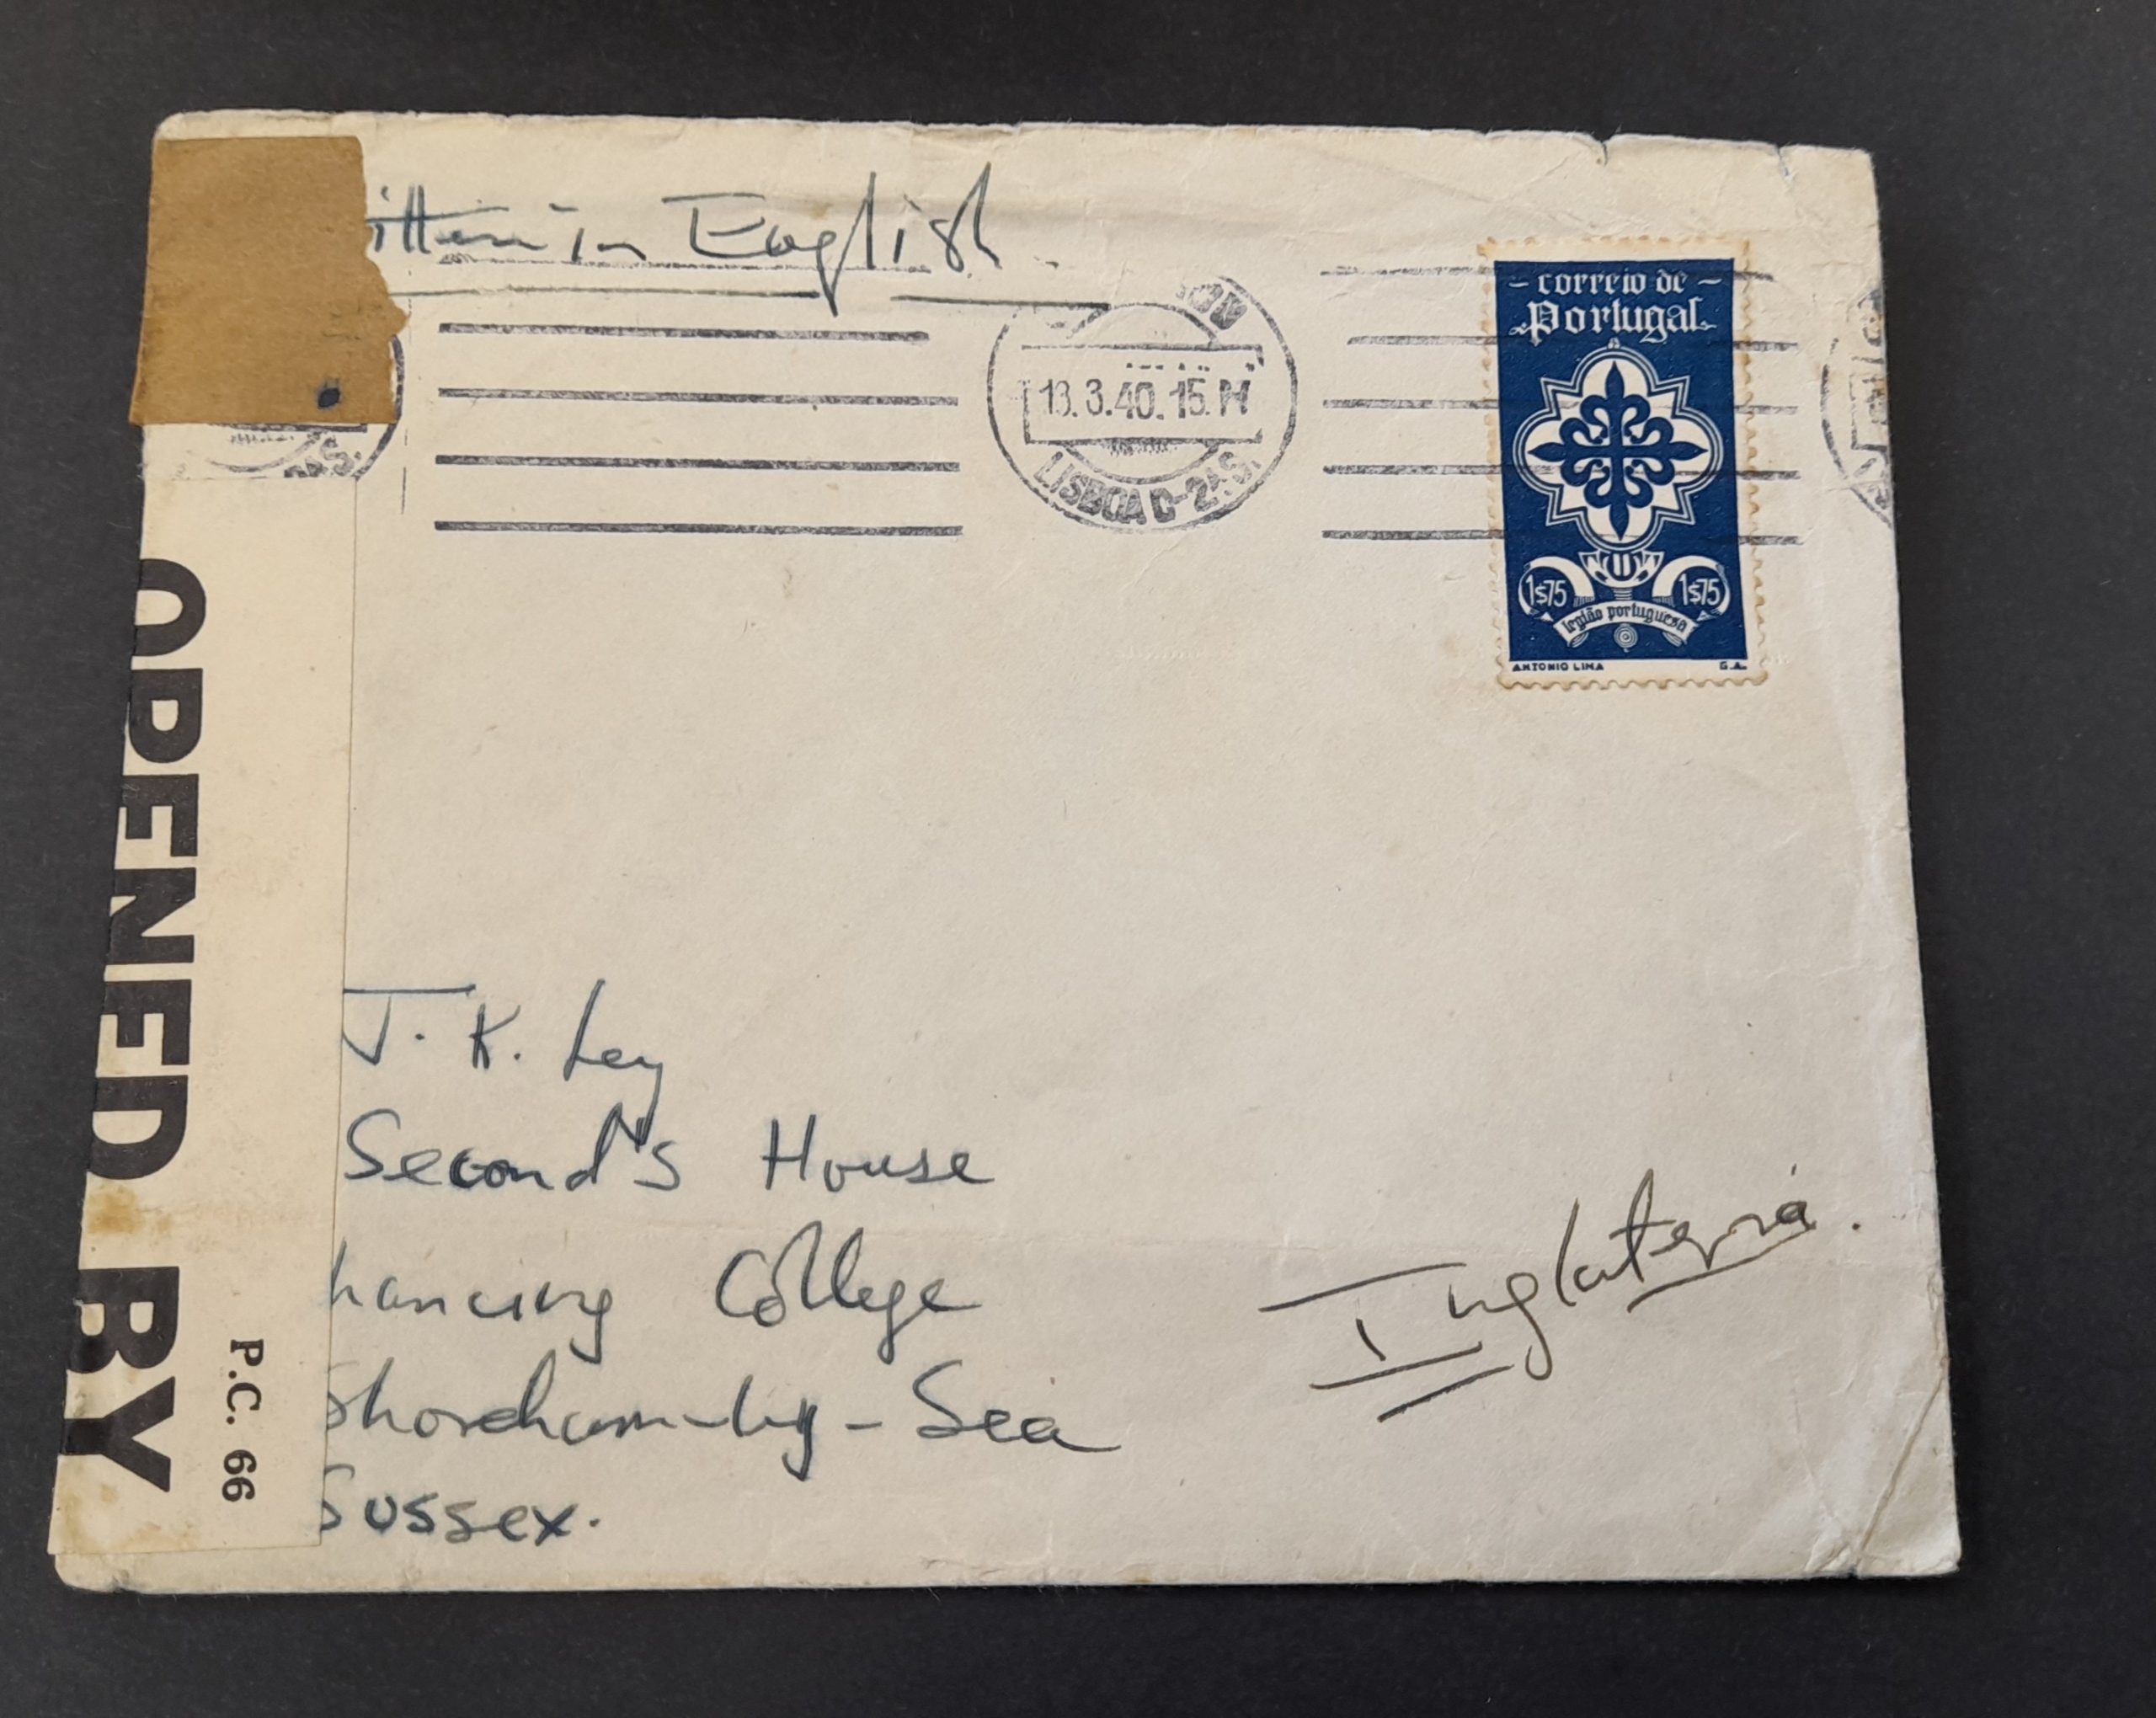 itten in English
- correio de -
Portugal
13.3.40.15.H
LISBOA C-2ªS.
ªS.
1$75 1$75
legião portuguesa
ANTONIO LIMA G.A.
OPENED BY
P.C. 66
J. K. Ley
Second's House
Lancing College
Shoreham-by-Sea
Sussex.
Inglaterra.